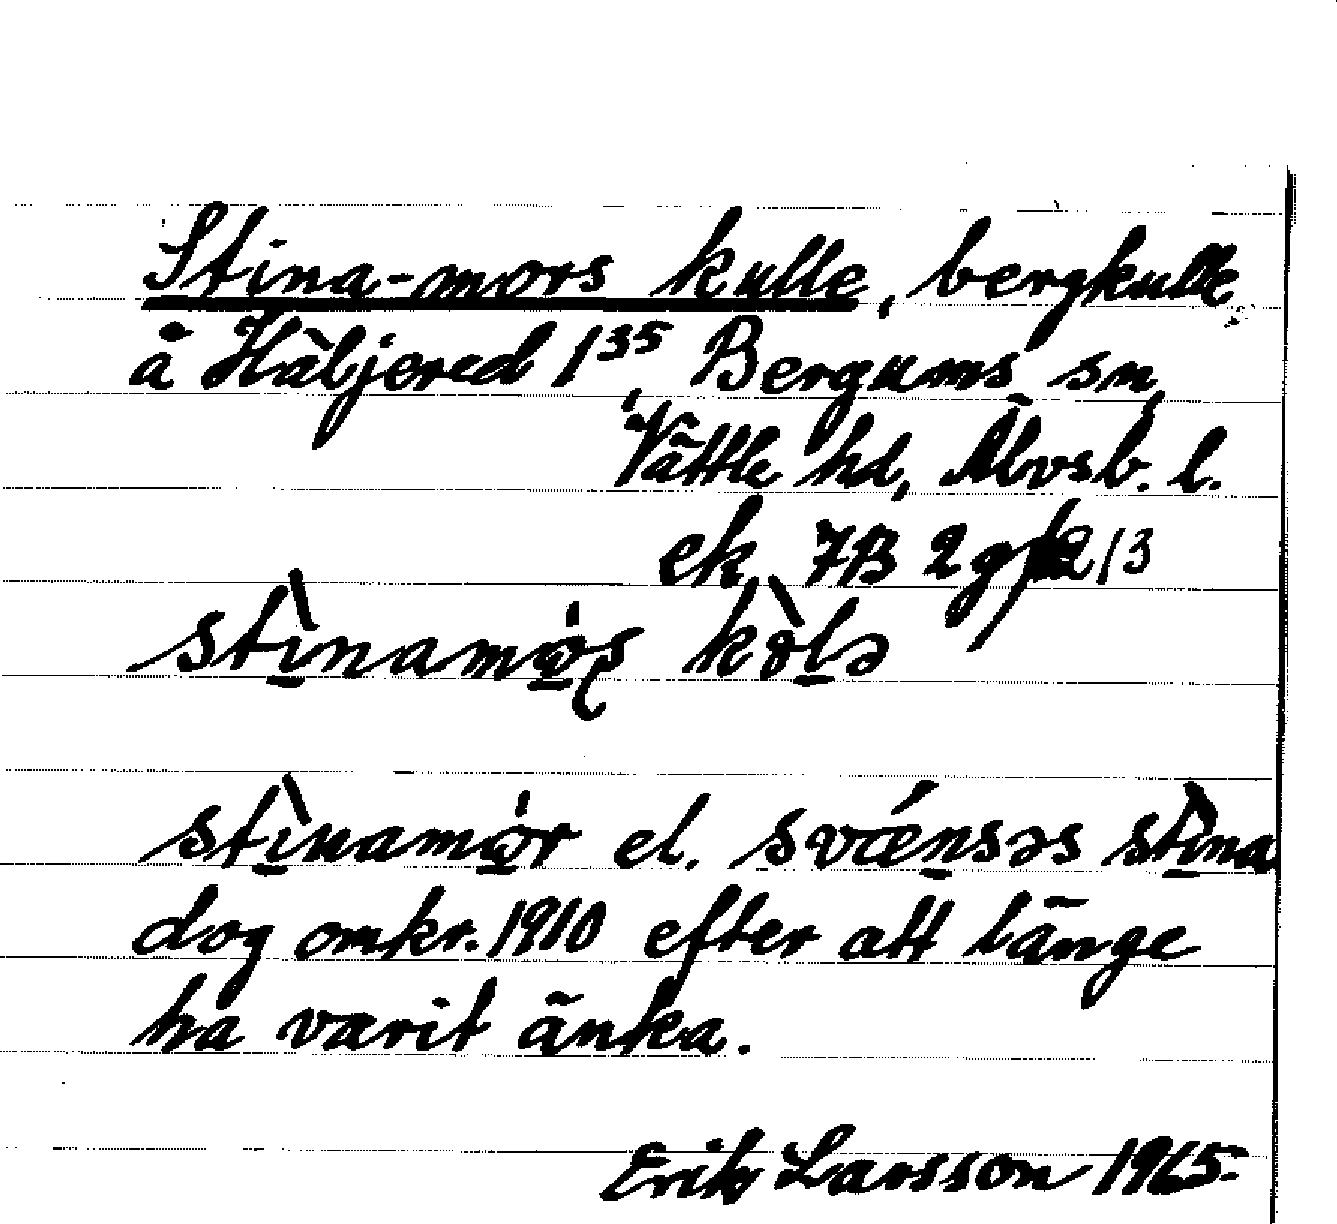 Stina-mors kulle, bergkulle
å Häljered 1³⁵, Bergums sn,
Vättle hd, Älvsb. l.
ek. 7B 2g /3
stìnamo̩ʂ kòlə
stìnamo̩r el. svænsəs stìna
dog omkr. 1910 efter att länge
ha varit änka.
Erik Larsson 1965.